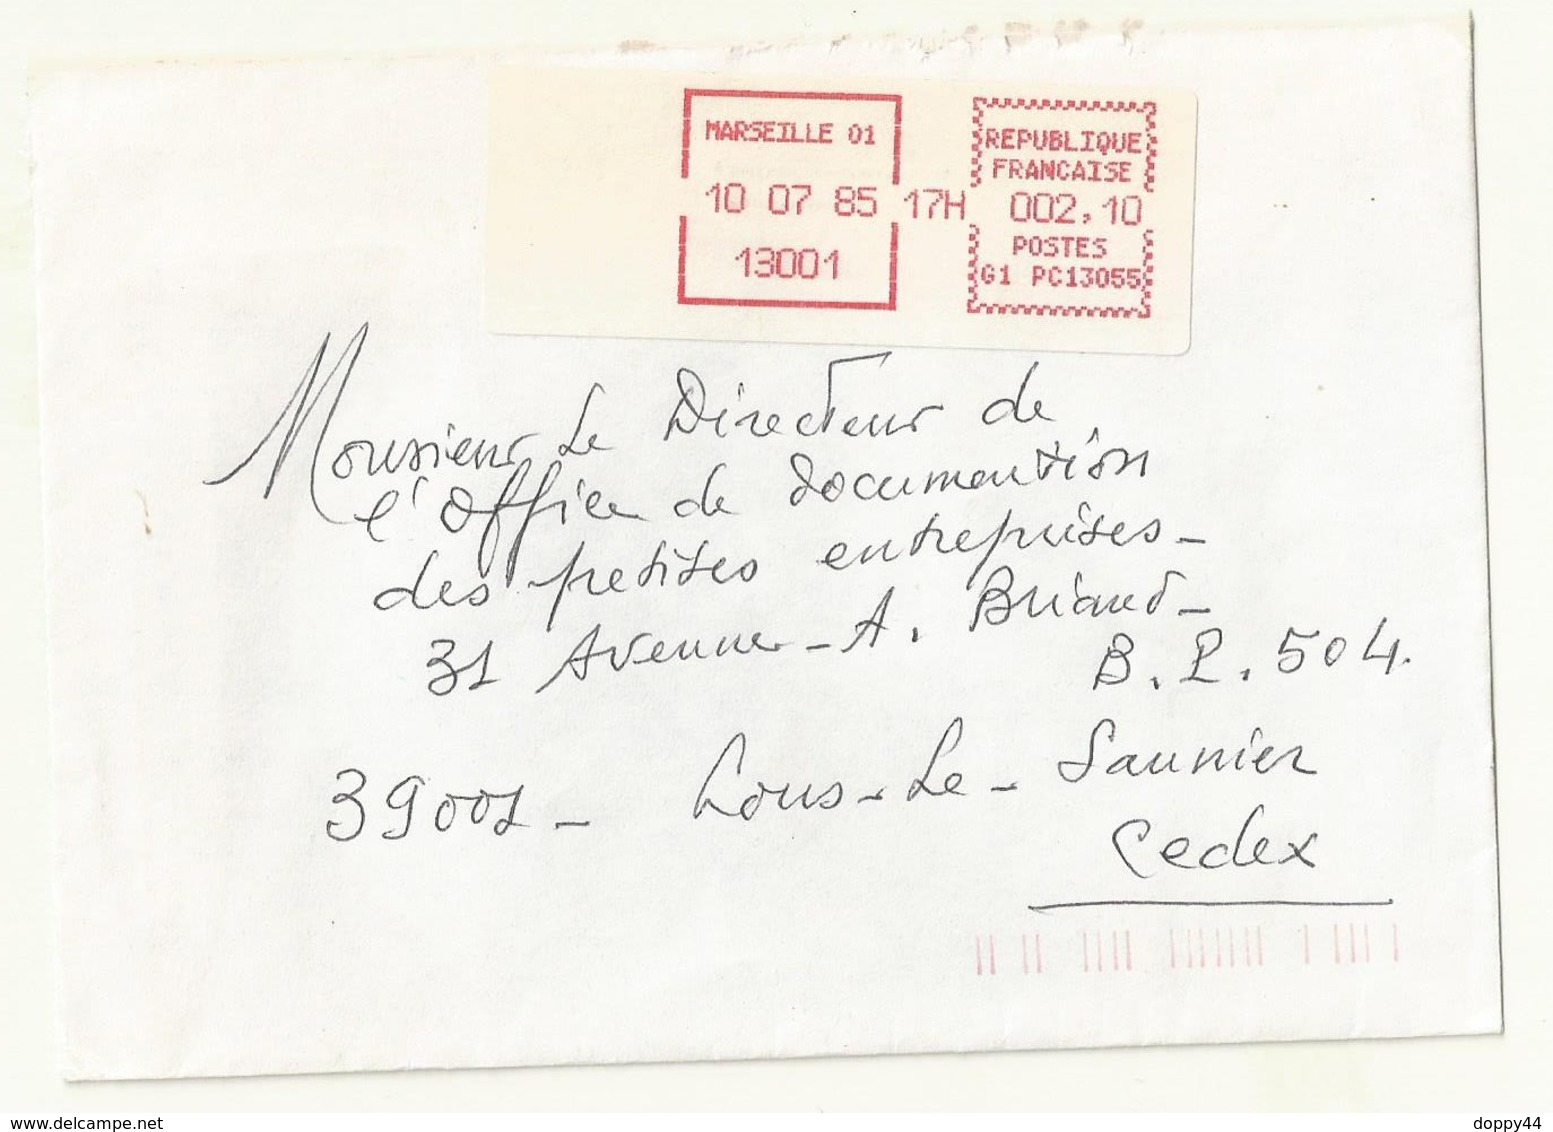 MARSEILLE 01
10 07 85 17H
13001
REPUBLIQUE
FRANCAISE
002,10
POSTES
G1 PC13055
Monsieur Le Directeur de
l'Office de documention
des petites entreprises -
31 Avenue - A. Briand -
B.P. 504.
39001 - Lons - Le - Saunier
Cedex
www.delcampe.net
doppy44